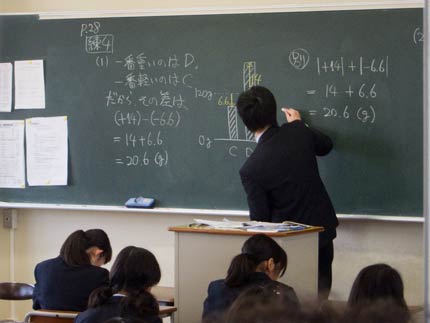 P.28
練4
(1) 一番重いのは D.
一番軽いのは C
だから、その差は、
(+14)-(-6.6)
= 14+6.6
= 20.6 (g)
120g
6.6
14
0g
C D
別 |+14|+|-6.6|
= 14 + 6.6
= 20.6 (g)
(2